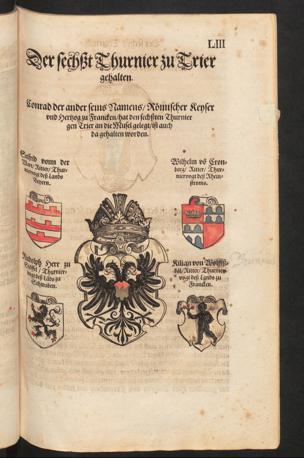 LIII
Der sechßt Thurnier zu Trier
gehalten.
Conrad der ander seins Namens / Römischer Keyser
vnd Hertzog zu Francken / hat den sechsten Thurnier
gen Trier an die Müsel gelegt / ist auch
da gehalten worden.
vonn der
Ritter / Thur-
niervogt deß Lands
Beyern.
Wilhelm vō Cron-
berg / Ritter / Thur-
niervogt deß Rhein-
stroms.
Rudolph Herr zu
/ Thurnier-
vogt deß Lāds zu
Schwaben.
Kilian von
/ Ritter / Thurnier-
vogt deß Lands zu
Francken.